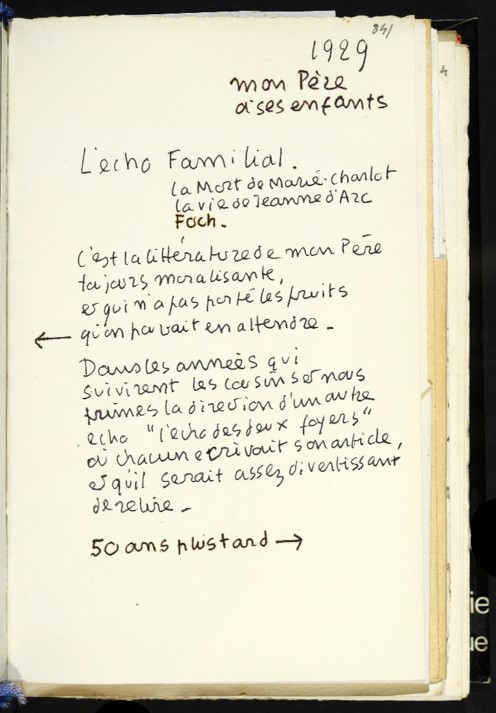 841
1929
mon Père
à ses enfants
L'echo Familial.
la Mort de Marié-Charlot
la vie de Jeanne d'Arc
Foch.
C'est la littérature de mon Père
toujours moralisante,
et qui n'a pas porté les fruits
← qu'on pouvait en attendre -
Dans les anneès qui
suivirent les cousins et nous
primes la direction d'un autre
echo "l'echo des deux foyers"
où chacun ecrivait son article,
et qu'il serait assez divertissant
de relire -
50 ans plus tard →
ie
ue